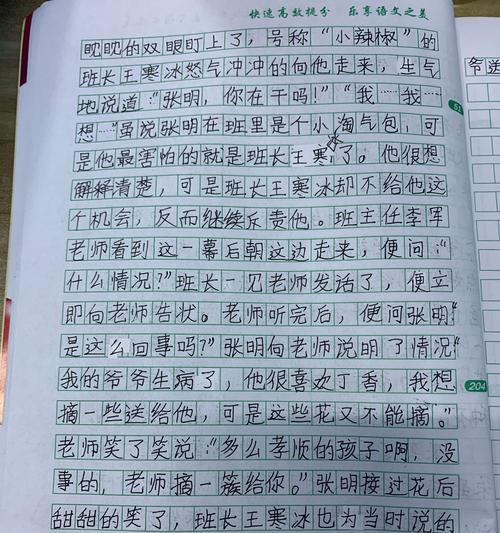 快速高效提分 乐享语文之美
眈眈的双眼盯上了，号称“小辣椒”的
班长王寒冰怒气冲冲的向他走来，生气
地说道：“张明，你在干吗！”“我……我……
想……”虽说张明在班里是个小淘气包，可
是他最害怕的就是班长王寒冰了。他很想
解释清楚，可是班长王寒冰却不给他这
个机会，反而继续斥责他。班主任李军
老师看到这一幕后朝这边走来，便问：“
什么情况？”班长一见老师发话了，便立
即向老师告状。老师听完后，便问张明“
是这么回事吗？”张明向老师说明了情况“
我的爷爷生病了，他很喜欢丁香，我想
摘一些送给他，可是这些花又不能摘。”
老师笑了笑说：“多么孝顺的孩子啊，没
事的，老师摘一簇给你。”张明接过花后
甜甜的笑了，班长王寒冰也为当时说的
爷
送
204